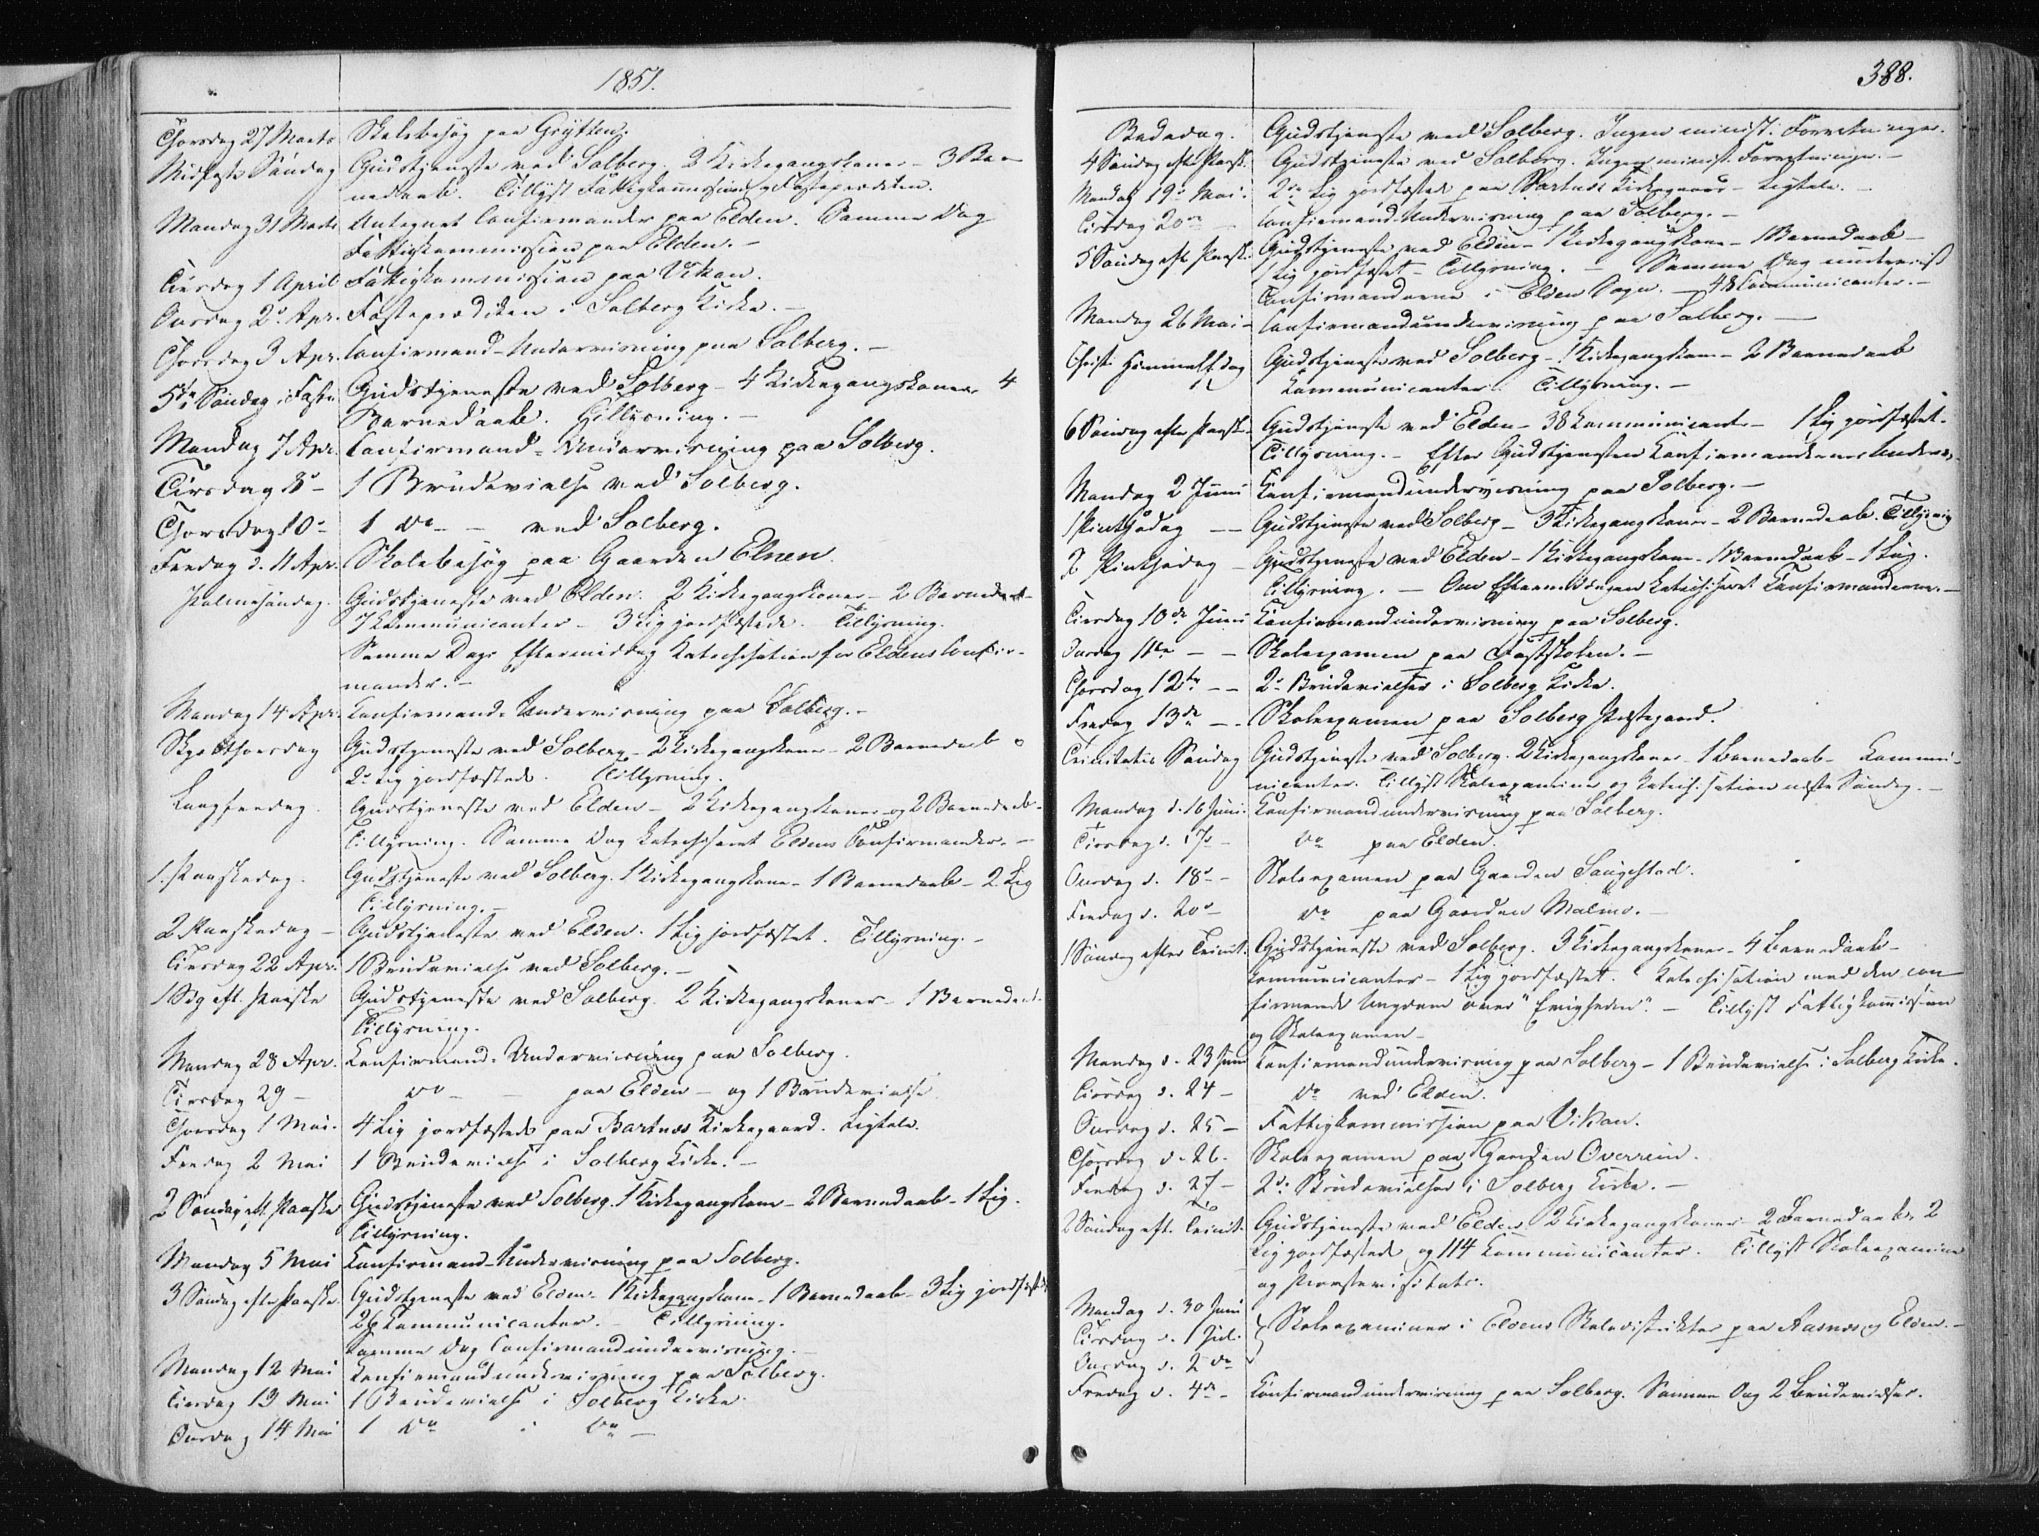 1851.
Thorsdag 27 Marts Skolebesøg paa Grÿtten.
Midfaste Søndag Gudstjeneste ved Solberg. 2 Kirkegangskoner - 3 Bar-
nedaab. Tillÿst Fattigkommission og Fasteprædiken.
Mandag 31 Marts Antegnet Confirmander paa Elden. Samme Dag
Fattigkommission paa Elden. -
Tirsdag 1 April Fattigkommission paa Vikan.
Onsdag 2. Apr. Fasteprædiken i Solberg Kirke. -
Thorsdag 3 Apr. Confirmand-Underviisning paa Solberg. -
5te Søndag i Faste Gudstjeneste ved Solberg - 4 Kirkegangskoner 4
Barnedaab. Tillÿsning. -
Mandag 7 Apr. Confirmand-Underviisning paa Solberg.
Tirsdag 8 - 1 Brudevielse ved Solberg.
Thorsdag 10 - 1 do - ved Solberg.
Fredag d. 11 Apr. Skolebesøg paa Gaarden Elnen.
Palmesøndag. Gudstjeneste ved Elden. 2 Kirkegangskoner - 2 Barnedaab -
7 Kommunicanter - 3 Lig jordfæstede. Tillÿsning.
Samme Dags Eftermiddag Katechisation for Eldens Confir-
mander. -
Mandag 14 Apr. Confirmand-Underviisning paa Solberg. -
Skjærthorsdag Gudstjeneste ved Solberg - 2 Kirkegangskoner - 2 Barnedaab o
2 Lig jordfæstede. Tillÿsning.
Langfredag. Gudstjeneste ved Elden - 2 Kirkegangskoner og 2 Barnedaab -
Tillÿsning. Samme Dag katechiseret Eldens Confirmander. -
1. Paaskedag. Gudstjeneste ved Solberg. 1 Kirkegangskone - 1 Barnedaab - 2 Lig
Tillÿsning. -
2 Paaskedag - Gudstjeneste ved Elden. 1 Lig jordfæstet. Tillÿsning. -
Tirsdag 22 Apr. 1 Brudevielse ved Solberg. -
1 Sdg eft. Paaske Gudstjeneste ved Solberg. 2 Kirkegangskoner - 1 Barnedaab.
Tillÿsning.
Mandag 28 Apr. Confirmand-Underviisning paa Solberg.
Tirsdag 29 - do - - paa Elden - og 1 Brudevielse.
Thorsdag 1 Mai. 4 Lig jordfæstede paa Bartnæs Kirkegaard. Ligtale.
Fredag 2 Mai 1 Brudevielse i Solberg Kirke. -
2 Søndag eft. Paaske Gudstjeneste ved Solberg. 1 Kirkegangskone - 2 Barnedaab - 1 Lig.
Tillÿsning.
Mandag 5 Mai Confirmand-Underviisning paa Solberg.
3 Søndag efter Paaske. Gudstjeneste ved Elden - 1 Kirkegangskone - 1 Barnedaab - 3 Lig jordfæstede
26 Kommunicanter. - Tillÿsning.
Samme Dag Confirmandunderviisning. -
Mandag 12 Mai Confirmandunderviisning paa Solberg.
Tirsdag 13 Mai 1 Brudevielse i Solberg Kirke.
Onsdag 14 Mai 1 do i do -
388.
Bededag. Gudstjeneste ved Solberg. Ingen minist. Forretninger.
4 Søndag efter Paaske. Gudstjeneste ved Solberg. Ingen minist. Forretninger. -
Mandag 19. Mai. 2 Lig jordfæstede paa Bartnæs Kirkegaard - Ligtale. -
Tirsdag 20 - Confirmand-Underviisning paa Solberg. -
5 Søndag eft. Paaske. Gudstjeneste ved Elden - 1 Kirkegangskone - 1 Barnedaab -
1 Lig jordfæstet - Tillÿsning. - Samme Dag underviist
Confirmanderne i Elden Sogn. - 48 Communicanter. -
Mandag 26 Mai - Confirmandunderviisning paa Solberg. -
Christi Himmelf.dag Gudstjeneste ved Solberg - 1 Kirkegangskone - 2 Barnedaab
Kommunicanter. Tillÿsning. -
6 Søndag efter Paaske - Gudstjeneste ved Elden - 38 Kommunicant. - 1 Lig jordfæstet.
Tillÿsning. - Efter Gudstjenesten Confirmandernes Underv.
Mandag 2 Juni Confirmandunderviisning paa Solberg. -
1 Pintsedag - Gudstjeneste ved Solberg - 3 Kirkegangskoner - 2 Barnedaab. Tillÿsning
2 Pintsedag - Gudstjeneste ved Elden - 1 Kirkegangskone - 1 Barnedaab - 1 Lig.
Tillÿsning. - Om Eftermiddagen katechiseret Confirmanderne. -
Tirsdag 10de Juni Confirmandunderviisning paa Solberg.
Onsdag 11te - - Skoleexamen paa Fastskolen. -
Thorsdag 12te - - 2 Brudevielser i Solberg Kirke.
Fredag 13de - - Skoleexamen paa Solberg Præstegaard.
Trinitatis Søndag Gudstjeneste ved Solberg. 2 Kirkegangskoner - 1 Barnedaab - Kommu-
nicanter. Tillÿst Skoleexamina og Katechisation næste Søndag. -
Mandag d. 16 Juni. Confirmandunderviisning paa Solberg.
Tirsdag d. 17 - do paa Elden.
Onsdag d. 18 - Skoleexamen paa Gaarden Saugestad.
Fredag d. 20 - do paa Gaarden Malmo. -
1 Søndag efter Trinit. Gudstjeneste ved Solberg. 3 Kirkegangskoner - 4 Barnedaab -
Kommunicanter - 1 Lig jordfæstet. Katechisation med den con-
firmerede Ungdom over "Evigheden". - Tillÿst Fattigkommission
og Skoleexamen -
Mandag d. 23 Juni Confirmandunderviisning paa Solberg - 1 Brudevielse i Solberg Kirke.
Tirsdag d. 24 - do ved Elden.
Onsdag d. 25 - Fattigkommission paa Vikan.
Thorsdag d. 26. Skoleexamen paa Gaarden Overrein.
Fredag d. 27 - 2 Brudevielser i Solberg Kirke. -
2 Søndag eft. Trinit. Gudstjeneste ved Elden 2 Kirkegangskoner - 2 Barnedaab, 2
Lig jordfæstede og 114 Kommunicanter. Tillÿst Skoleexamina
og Provstevisitats.
Mandag d. 30 Juni
Tirsdag d. 1 Jul. } Skoleexaminer i Eldens Skoledistrikter paa Aasnes og Elden. -
Onsdag d. 2 do
Fredag d. 4de - Confirmandunderviisning paa Solberg. Samme Dag 2 Brudevielser.